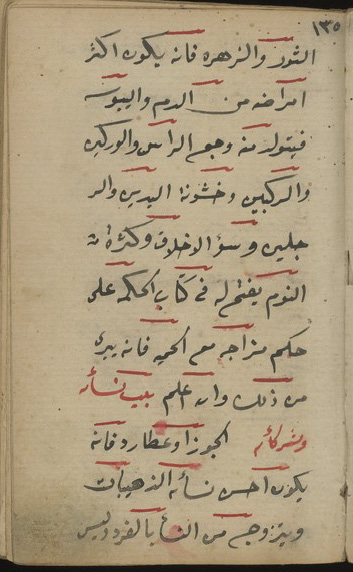 ١٣٥
الثور والزهره فانه يكون اكثر
امراضه من الدم واليبوسه
فيتولد منه وجع الراس والوركين
والركبين وخشونة اليدين والر
جلين وسؤ الاخلاق وكثرة
النوم يفتح له في كتاب الحكمه على
حكم مزاجه مع الحميه فانه يبرى
من ذلك والله اعلم بيت نسائه
وشركائه الجوزا وعطارد فانه
يكون احسن نسائه الذهبيات
ويتزوج من النسا بالفرد وليس